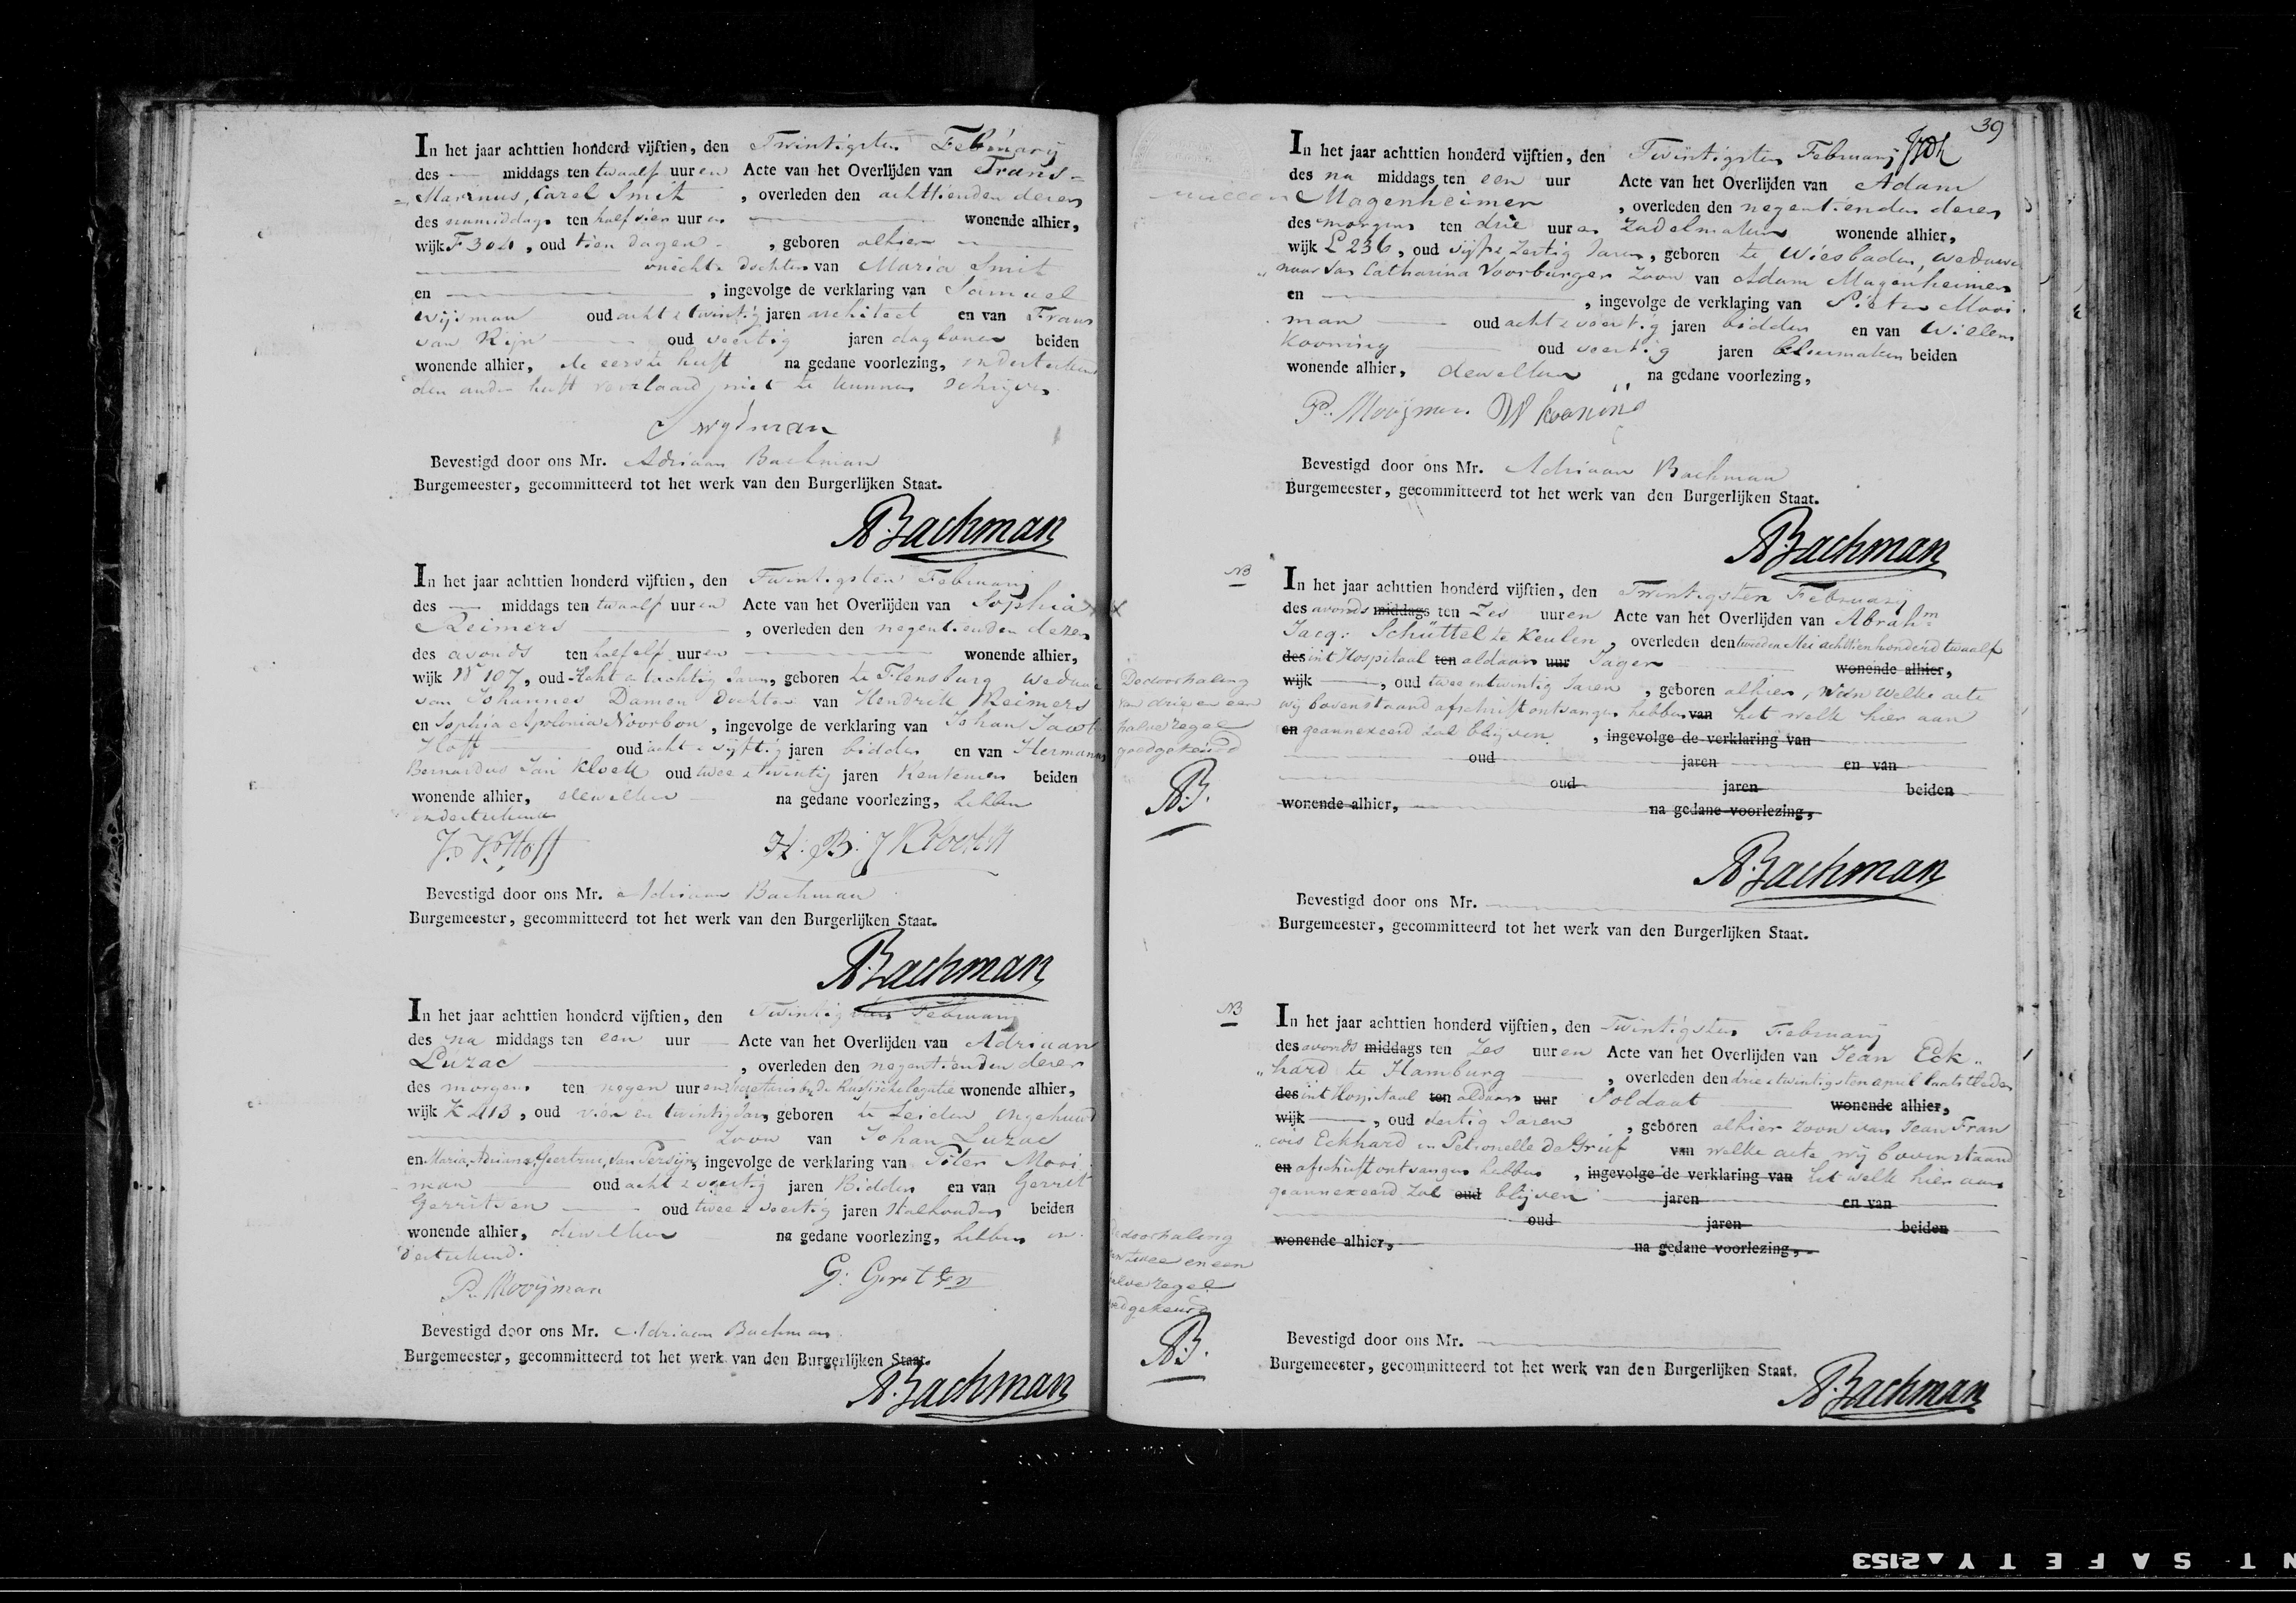 In het jaar achttien honderd vijftien, den Twintigsten Februarij
des — middags ten twaalf uuren Acte van het Overlijden van Frans
Marinus, Carel Smit, overleden den achttienden dezer
des namiddags ten half vier uuren wonende alhier,
wijk F 304, oud tien dagen, geboren alhier
onechte dochter van Maria Smit
en —, ingevolge de verklaring van Samuel
Wijsman oud acht & twintig jaren architect en van Frans
van Rijn oud veertig jaren daglooner beiden
wonende alhier, de eerste heeft na gedane voorlezing, ondertekend
den ander heeft verklaard niet te kunnen schrijven
S wysman
Bevestigd door ons Mr. Adriaan Bachman
Burgemeester, gecommitteerd tot het werk van den Burgerlijken Staat.
A Bachman
In het jaar achttien honderd vijftien, den Twintigsten Februarij
des — middags ten twaalf uuren Acte van het Overlijden van Sophia
Reimers, overleden den negentienden dezer
des avonds ten half elf uuren wonende alhier,
wijk W 107, oud Acht en tachtig Jaren, geboren te Flensburg weduwe
van Johannes Damen dochter van Hendrik Reimers
en Sophia Apolonia Noorbon, ingevolge de verklaring van Johan Jacob
Hoff oud acht & vijftig jaren bidder en van Hermanus
Bernardus Jan Kloek oud twee & twintig jaren Rentenier beiden
wonende alhier, dewelken na gedane voorlezing, hebben
ondertekend
J. J. Hoff H: B: J Kloek
Bevestigd door ons Mr. Adriaan Bachman
Burgemeester, gecommitteerd tot het werk van den Burgerlijken Staat.
A Bachman
In het jaar achttien honderd vijftien, den Twintigsten Februarij
des na middags ten een uur Acte van het Overlijden van Adriaan
Luzac, overleden den negentienden dezer
des morgens ten negen uuren Secretaris by de Russische legatie wonende alhier,
wijk K 413, oud vier en twintig Jaar, geboren te Leiden ongehuwd
Zoon van Johan Luzac
en Maria, Adriana, Geertrui, van Persijn, ingevolge de verklaring van Pieter Mooi
man oud acht & veertig jaren Bidder en van Gerrit
Gerritsen oud twee & veertig jaren Stalhouder beiden
wonende alhier, dewelken na gedane voorlezing, hebben on
dertekend.
P. Mooijman G: Gerritsen
Bevestigd door ons Mr. Adriaan Bachman
Burgemeester, gecommitteerd tot het werk van den Burgerlijken Staat.
A Bachman
39
In het jaar achttien honderd vijftien, den Twintigsten Februarij
des na middags ten een uur Acte van het Overlijden van Adam
Magenheimer, overleden den negentienden dezer
des morgens ten drie uuren Zadelmaker wonende alhier,
wijk L 236, oud vijf & zestig Jaren, geboren te Wiesbaden, weduwe
naar van Catharina Voorburger Zoon van Adam Magenheimer
en —, ingevolge de verklaring van Pieter Mooi
man oud acht & veertig jaren bidder en van Willem
Kooning oud veertig jaren kleermaker beiden
wonende alhier, dewelken na gedane voorlezing,
P. Mooijman W kooning
Bevestigd door ons Mr. Adriaan Bachman
Burgemeester, gecommitteerd tot het werk van den Burgerlijken Staat.
A Bachman
NB
In het jaar achttien honderd vijftien, den Twintigsten Februarij
des avonds middags ten Zes uuren Acte van het Overlijden van Abrahm
Jacq: Schüttel te Keulen, overleden den tweeden Mei achttien honderd twaalf
des int Hospitaal ten aldaar uur Jager wonende alhier,
wijk —, oud twee en twintig Jaren, geboren alhier, van welke acte
wij bovenstaand afschrift ontvangen hebben van het welk hier aan
en geannexeerd zal blijven, ingevolge de verklaring van
oud jaren en van
oud jaren beiden
wonende alhier, na gedane voorlezing,
De doorhaling
van drie en een
halve regel
goedgekeurd
A.B.
A Bachman
Bevestigd door ons Mr.
Burgemeester, gecommitteerd tot het werk van den Burgerlijken Staat.
NB
In het jaar achttien honderd vijftien, den Twintigsten Februarij
des avonds middags ten Zes uuren Acte van het Overlijden van Jean Eck
hard te Hamburg, overleden den drie & twintigsten april laatstleden
des int Hospitaal ten aldaar uur Soldaat wonende alhier,
wijk —, oud dertig Jaren, geboren alhier Zoon van Jean Fran
cois Eckhard en Petronelle de Gruif van welke acte wij bovenstaand
en afschrift ontvangen hebben, ingevolge de verklaring van het welk hier aan
geannexeerd zal oud blijven jaren en van
oud jaren beiden
wonende alhier, na gedane voorlezing,
De doorhaling
van twee en een
halve regel
goedgekeurd
A.B.
Bevestigd door ons Mr.
Burgemeester, gecommitteerd tot het werk van den Burgerlijken Staat.
A Bachman
N T SAFETY▲2153